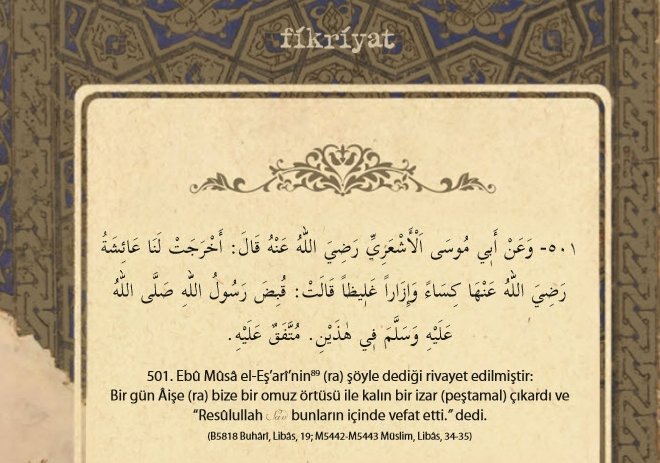 fikriyat
٥٠١- وَعَنْ أَبِي مُوسَى اَلْأَشْعَرِيِّ رَضِيَ اللّٰهُ عَنْهُ قَالَ: أَخْرَجَتْ لَنَا عَائِشَةُ
رَضِيَ اللّٰهُ عَنْهَا كِسَاءً وَإِزَاراً غَلِيظاً قَالَتْ: قُبِضَ رَسُولُ اللّٰهِ صَلَّى اللّٰهُ
عَلَيْهِ وَسَلَّمَ فِي هٰذَيْنِ. مُتَّفَقٌ عَلَيْهِ.
501. Ebû Mûsâ el-Eş’arî’nin⁸⁹ (ra) şöyle dediği rivayet edilmiştir:
Bir gün Âişe (ra) bize bir omuz örtüsü ile kalın bir izar (peştamal) çıkardı ve
“Resûlullah Sav bunların içinde vefat etti.” dedi.
(B5818 Buhârî, Libâs, 19; M5442-M5443 Müslim, Libâs, 34-35)